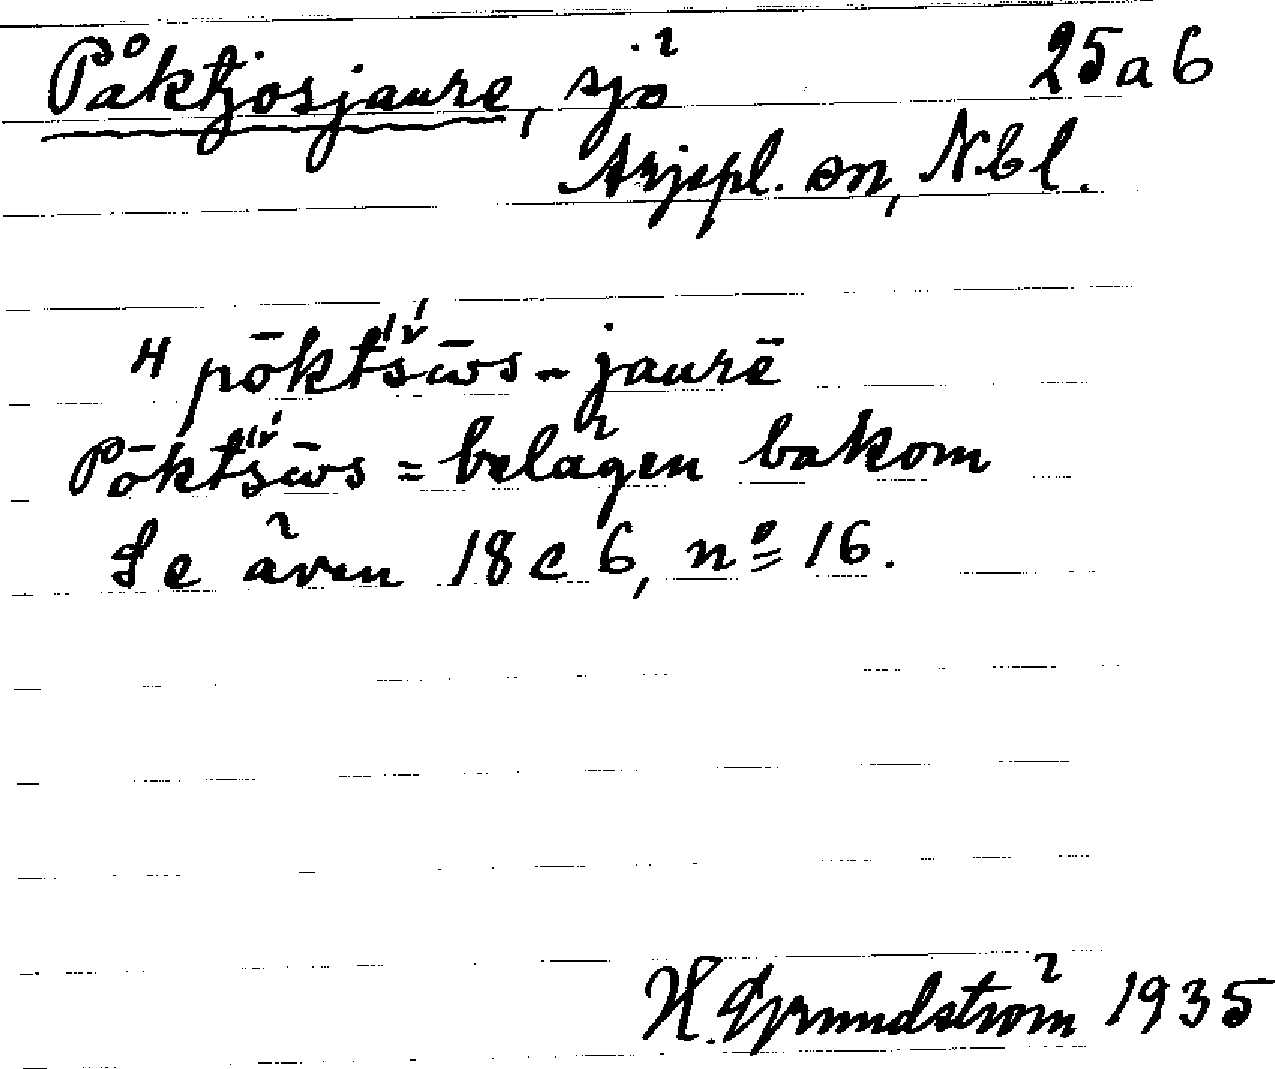 Påktjosjaure, sjö 25 a 6
Arjepl. sn, Nbl.
ʜ pōktš́ūs-jaurē
Pōktš́ūs = belägen bakom
Se även 18 c 6, nº 16.
H. Grundström 1935